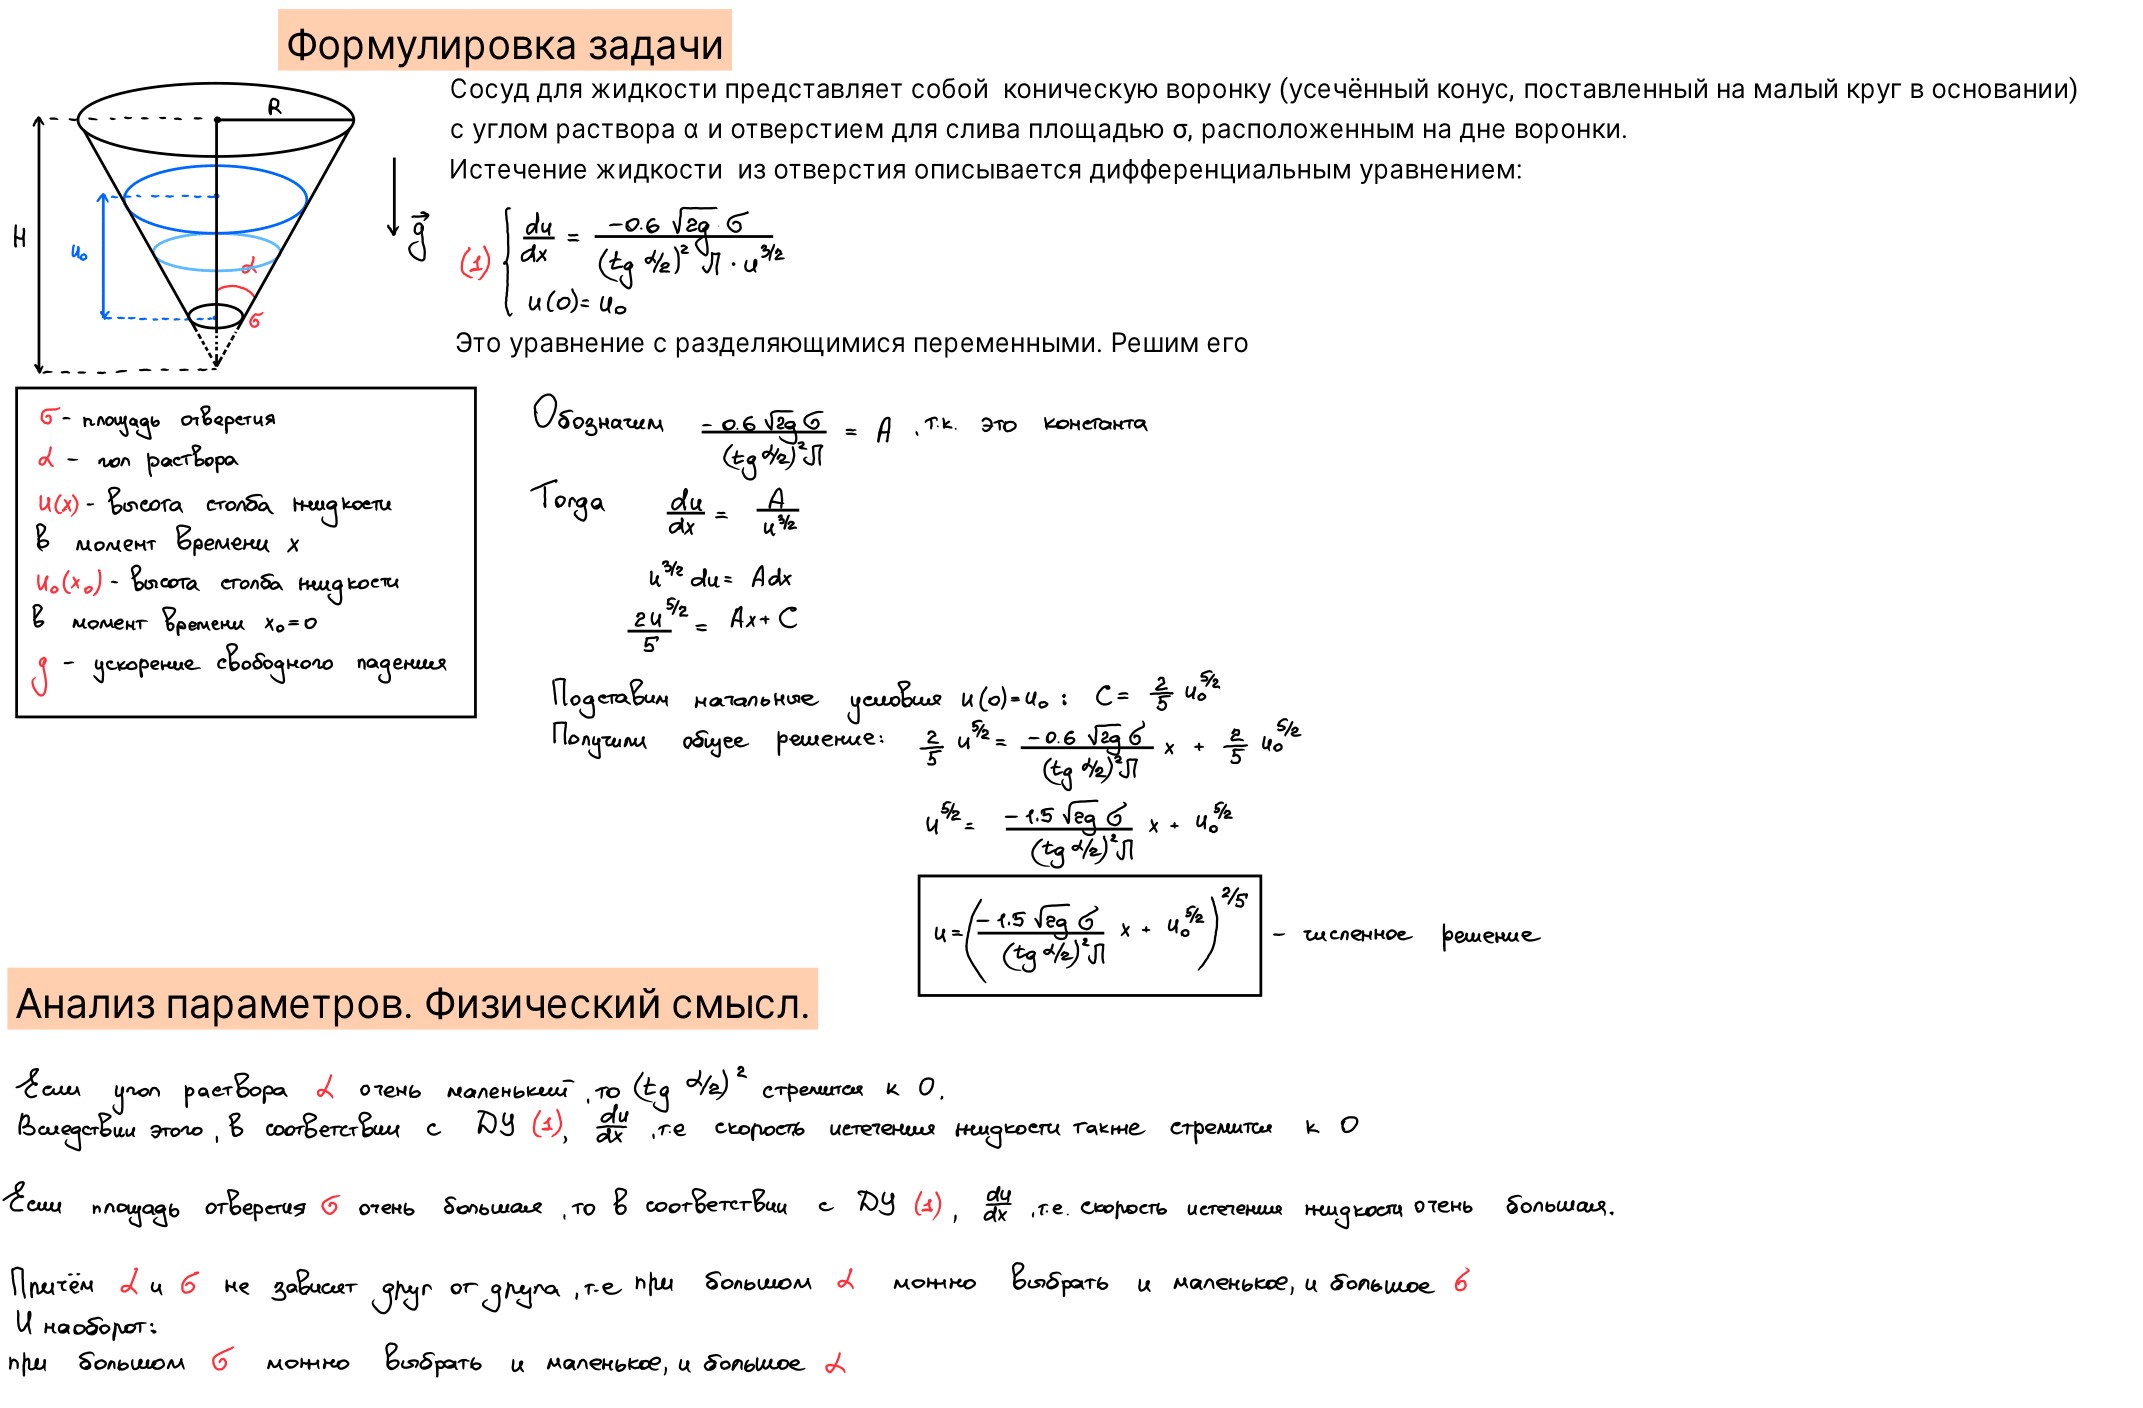 Формулировка задачи
Сосуд для жидкости представляет собой коническую воронку (усечённый конус, поставленный на малый круг в основании)
с углом раствора α и отверстием для слива площадью σ, расположенным на дне воронки.
Истечение жидкости из отверстия описывается дифференциальным уравнением:
R
H
u₀
α
σ
g⃗
(1) { du/dx = -0.6 √2g σ / ((tg α/2)² π · u^3/2)
u(0) = u₀
Это уравнение с разделяющимися переменными. Решим его
σ - площадь отверстия
α - гол раствора
u(x) - высота столба жидкости
в момент времени x
u₀(x₀) - высота столба жидкости
в момент времени x₀=0
g - ускорение свободного падения
Обозначим -0.6 √2g σ / ((tg α/2)² π) = A , т.к. это константа
Тогда du/dx = A / u^3/2
u^3/2 du = Adx
2u^5/2 / 5 = Ax + C
Подставим начальные условия u(0)=u₀ : C = 2/5 u₀^5/2
Получили общее решение: 2/5 u^5/2 = -0.6 √2g σ / ((tg α/2)² π) x + 2/5 u₀^5/2
u^5/2 = -1.5 √2g σ / ((tg α/2)² π) x + u₀^5/2
u = (-1.5 √2g σ / ((tg α/2)² π) x + u₀^5/2)^2/5 - численное решение
Анализ параметров. Физический смысл.
Если угол раствора α очень маленький , то (tg α/2)² стремится к 0.
Вследствии этого , в соответствии с ДУ (1), du/dx , т.е скорость истечения жидкости также стремится к 0
Если площадь отверстия σ очень большая , то в соответствии с ДУ (1), du/dx , т.е. скорость истечения жидкости очень большая.
Причём α и σ не зависят друг от друга , т.е при большом α можно выбрать и маленькое, и большое σ
И наоборот:
при большом σ можно выбрать и маленькое, и большое α